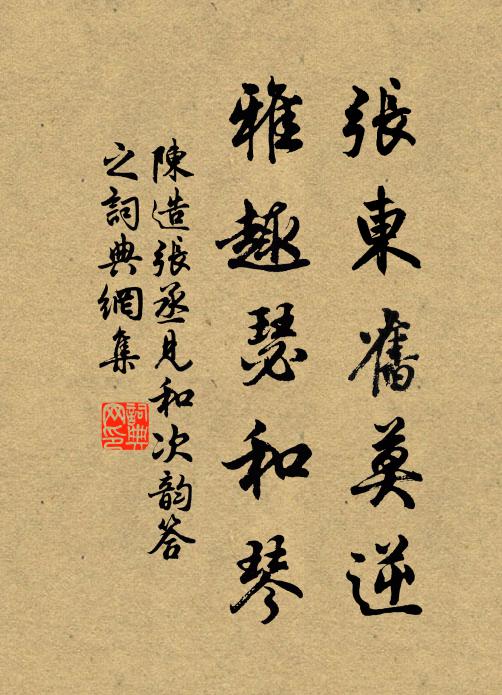 張東舊莫逆
雅趣瑟和琴
陳造張丞見和次韵答
之詞典網集
詞典
网印